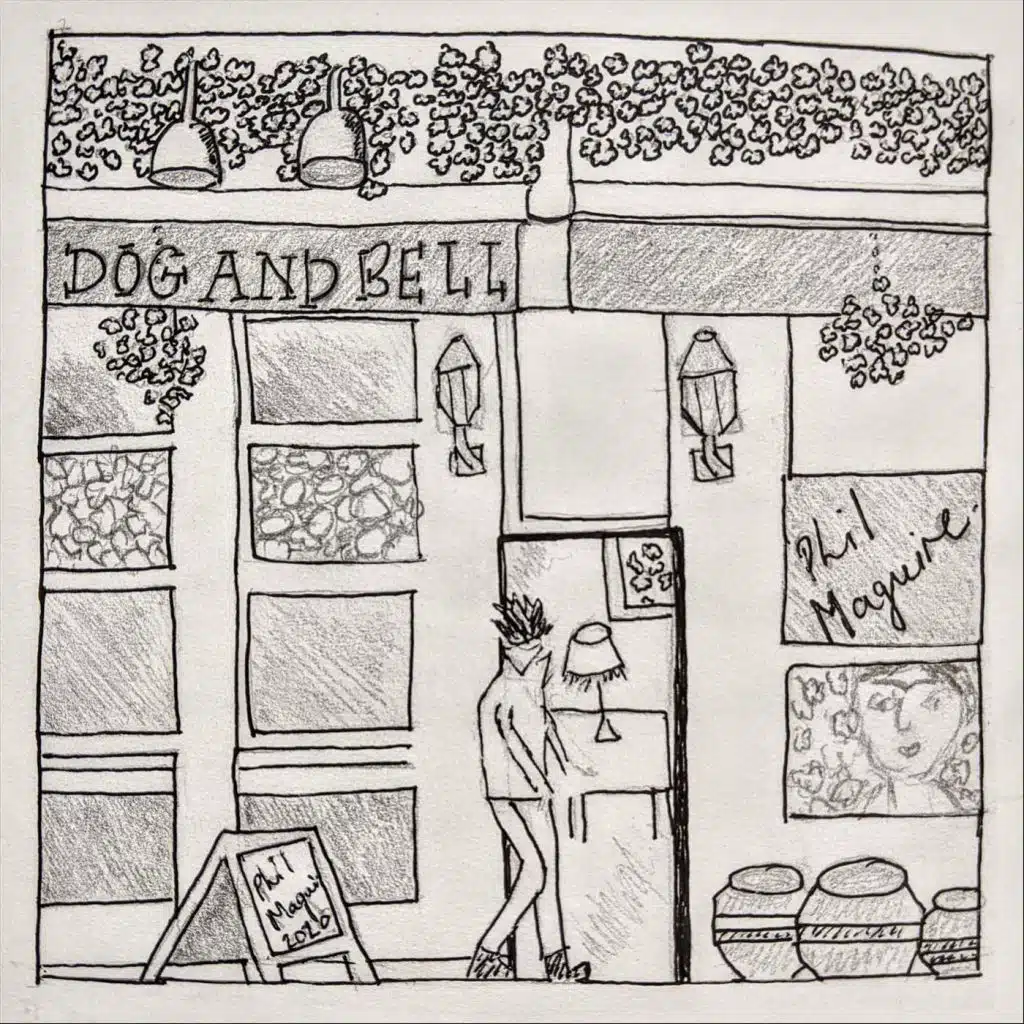 DOG AND BELL
Phil
Maguire
Phil
Maguire
2026